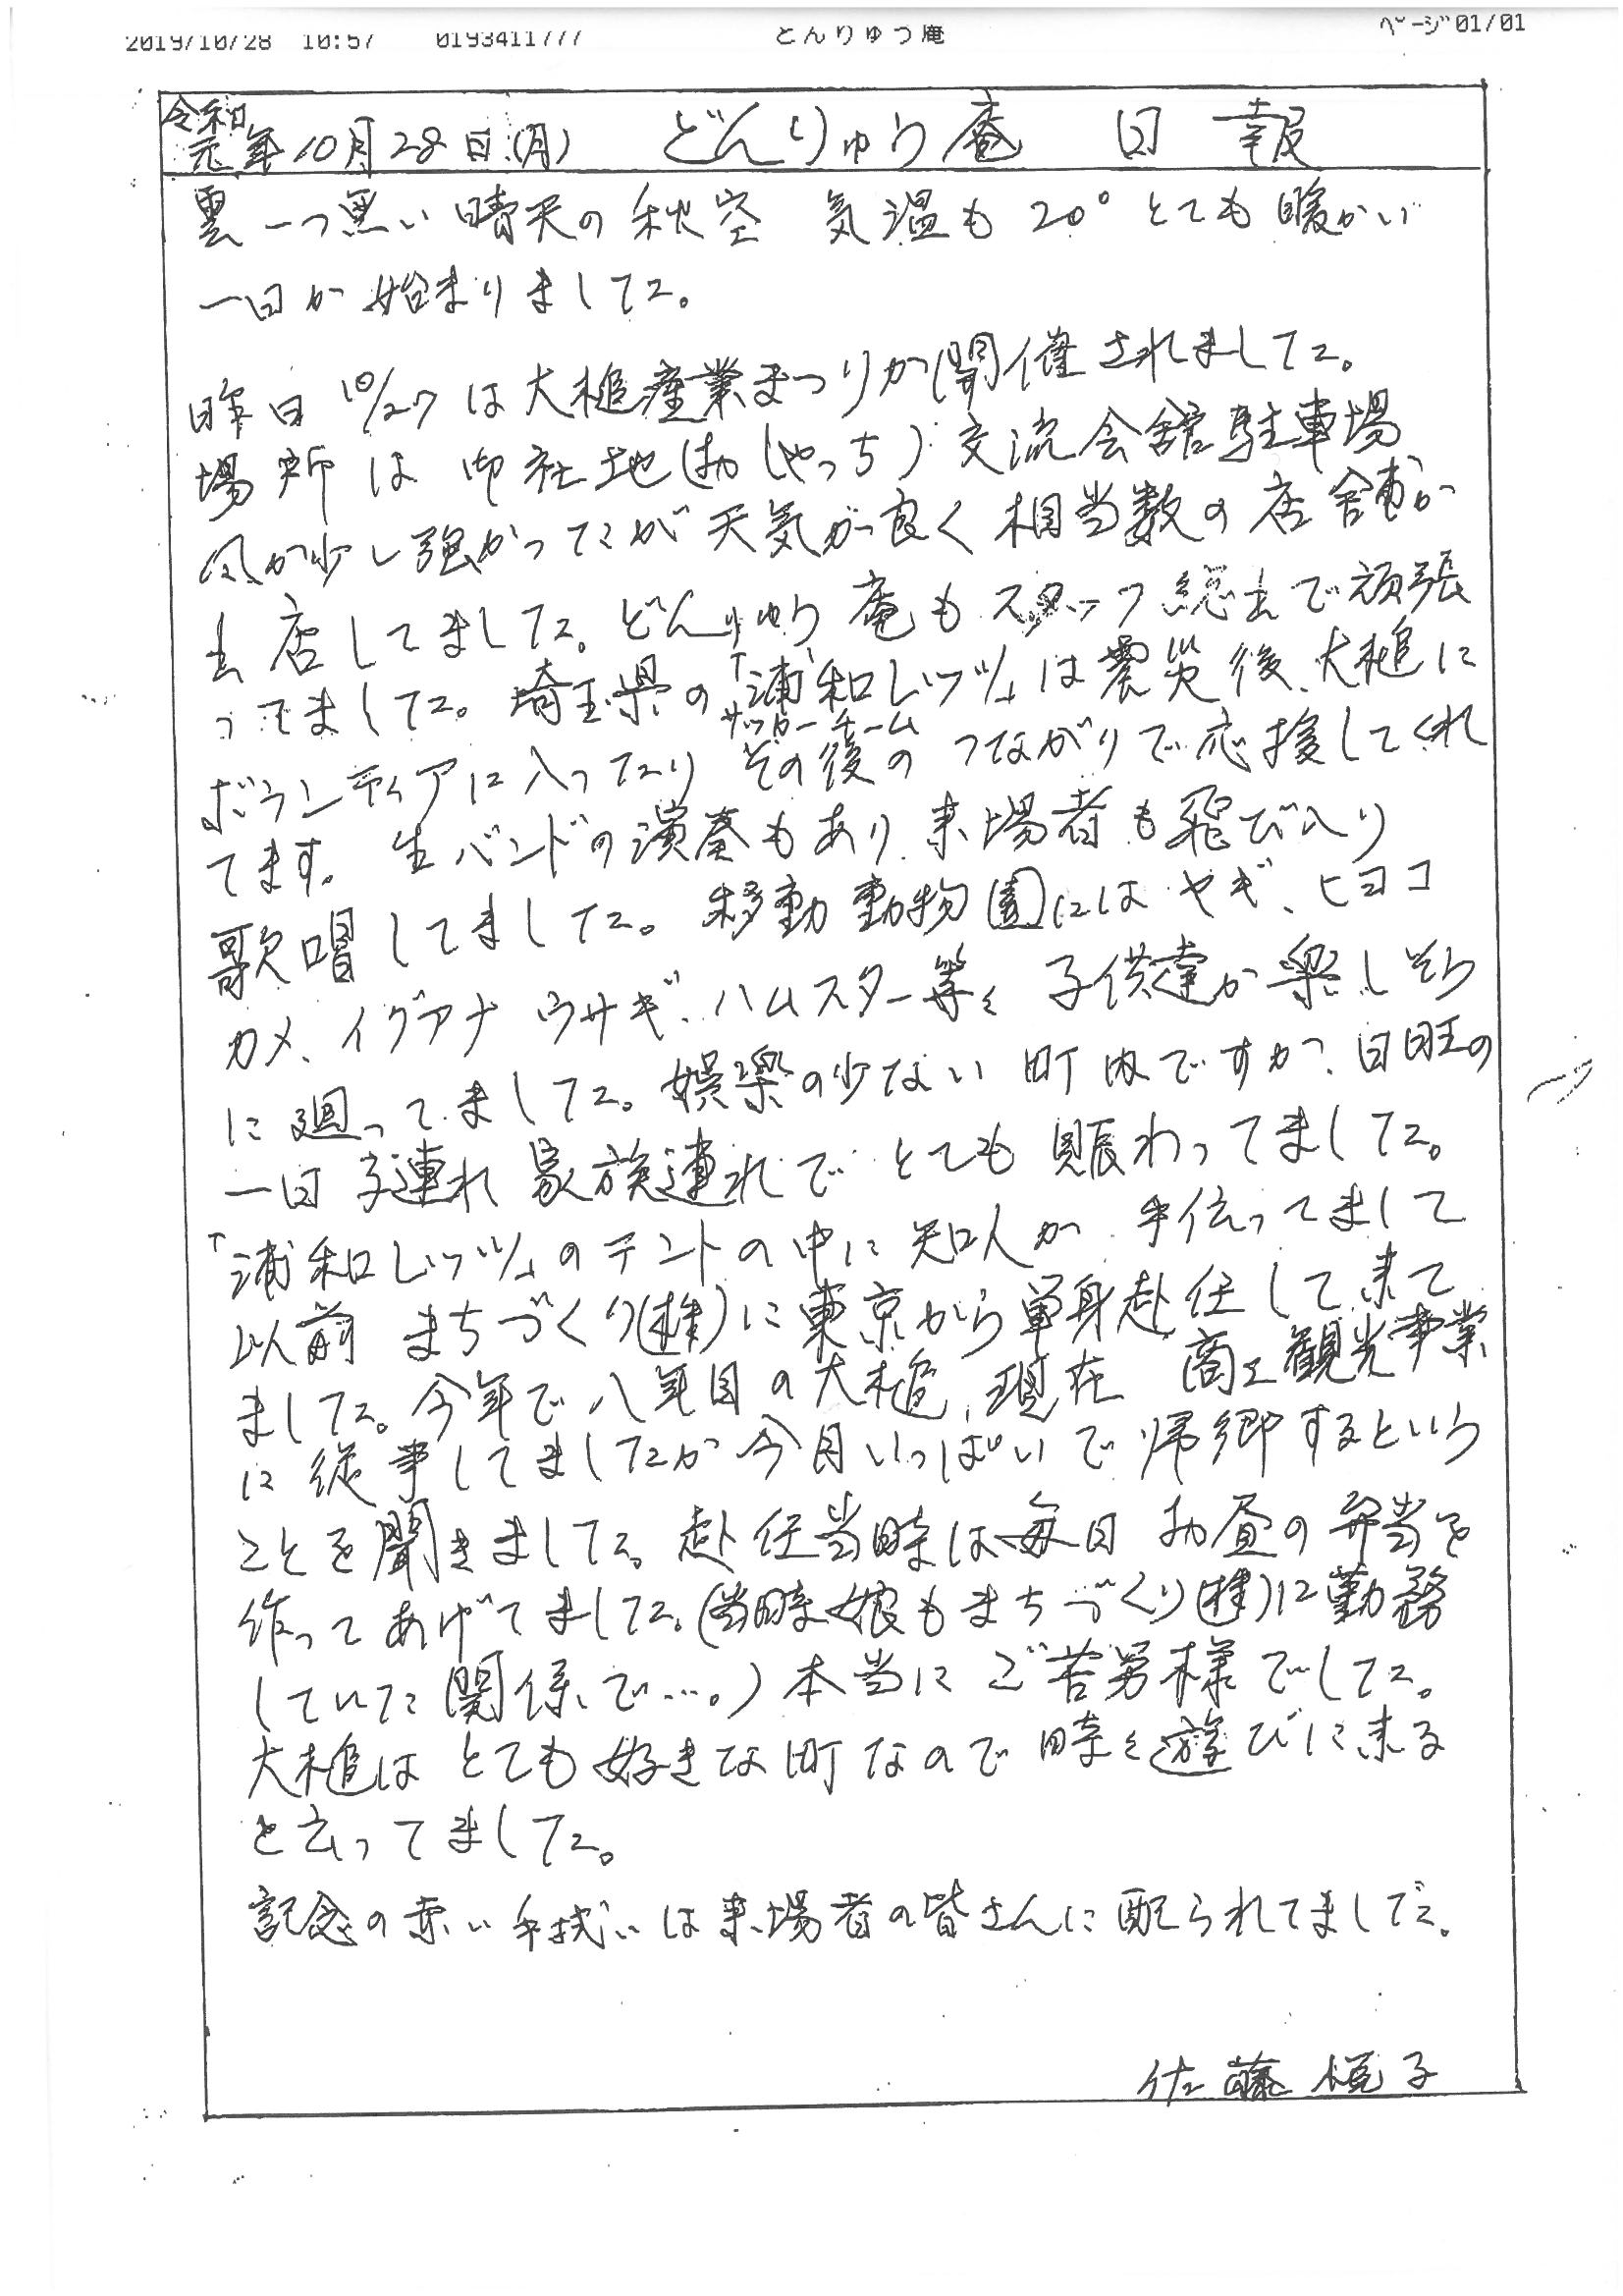 2019/10/28 10:57 0193411777 とんりゅう庵 ページ 01/01
令和元年10月28日(月) どんりゅう庵 日報
雲一つ無い晴天の秋空 気温も20°とても暖かい
一日が始まりました。
昨日10/27は大槌産業まつりが開催されました。
場所は御社地(おしゃっち)交流会館駐車場
風が少し強かったが天気が良く相当数の店舗が
出店してました。どんりゅう庵もスタッフ総出で頑張
ってました。埼玉県の「浦和レッツ」は震災後、大槌に
サッカーチーム
ボランティアに入ったりその後のつながりで応援してくれ
てます。生バンドの演奏もあり、来場者も飛び入り
歌唱してました。移動動物園にはヤギ、ヒヨコ
カメ、イグアナ ウサギ、ハムスター等々 子供達が楽しそう
に廻ってました。娯楽の少ない町内ですが、日曜の
一日子連れ家族連れでとても賑わってました。
「浦和レッツ」のテントの中に知人が手伝ってまして
以前まちづくり(株)に東京から単身赴任して来て
ました。今年で八年目の大槌、現在 商工観光事業
に従事してましたが今月いっぱいで帰郷するという
ことを聞きました。赴任当時は毎日お昼の弁当を
作ってあげてました。(当時娘もまちづくり(株)に勤務
していた関係で…。)本当にご苦労様でした。
大槌はとても好きな町なので時々遊びに来る
と云ってました。
記念の赤い手拭いは来場者の皆さんに配られてました。
佐藤悦子